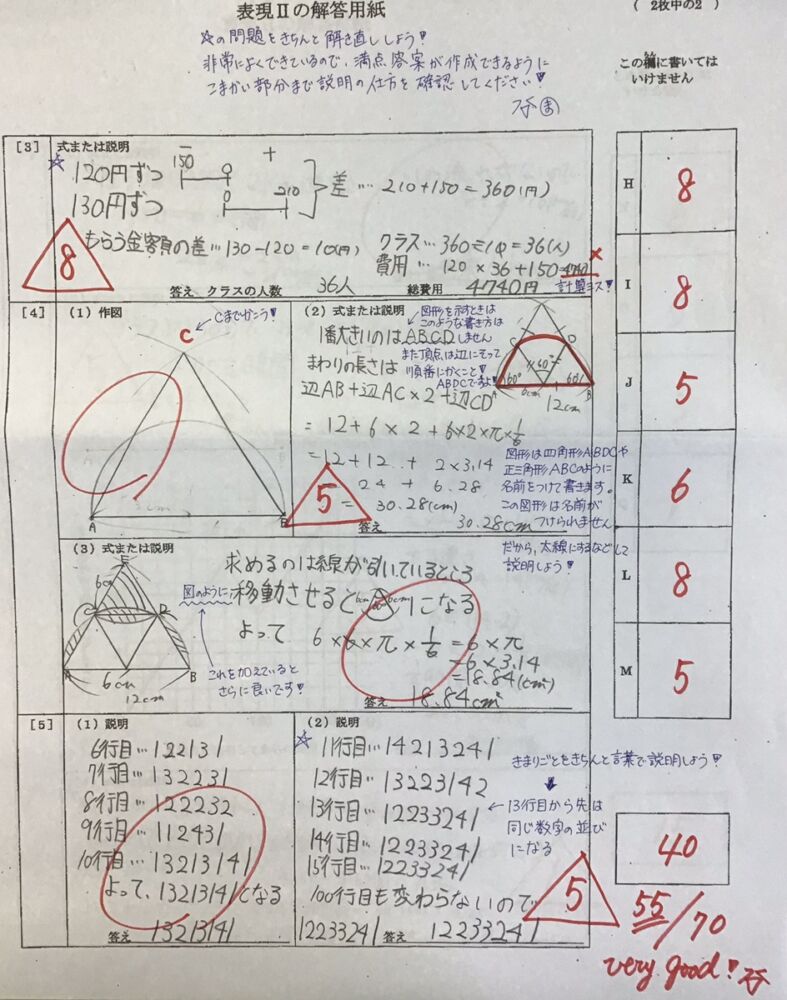 表現Ⅱの解答用紙
( 2枚中の2 )
☆の問題をきちんと解き直ししよう!
非常によくできているので、満点答案が作成できるように
こまかい部分まで説明の仕方を確認してください!
この欄に書いては
いけません
[3] 式または説明
☆
120円ずつ
130円ずつ
150
-
0
+
0
210
差… 210+150=360(円)
もらう金額の差…130-120=10(円)
クラス…360÷10=36(人)
費用… 120×36+150=4740
×
計算ミス!
8
答え、クラスの人数 36人 総費用 4740円
[4] (1) 作図
Cまでかこう!
C
A
B
(2) 式または説明
1番大きいのはABCD
図形を示すときは
このような書き方は
しません
また頂点は辺にそって
順番にかくこと!
ABDCですよ!
C
D
A
B
60°
60°
60°
6cm
12cm
まわりの長さは
辺AB+辺AC×2+辺CD
=12+6×2+6×2×π×1/6
=12+12+2×3.14
=24+6.28
=30.28(cm)
5
図形は四角形ABDCや
正三角形ABCのように
名前をつけて書きます。
この図形は名前が
つけられません。
だから、太線にするなどして
説明しよう!
答え 30.28cm
(3) 式または説明
E
6cm
C
D
A
B
6cm
12cm
求めるのは線が引いているところ
図のように
移動させると
6cm
6cm
になる
これを加えていると
さらに良いです!
よって 6×6×π×1/6=6×π
=6×3.14
=18.84(cm²)
答え 18.84cm²
[5] (1) 説明
6行目…122131
7行目…132231
8行目…122232
9行目…112431
10行目…13213141
よって、1321314になる
答え 1321314
(2) 説明
☆
11行目…14213241
12行目…13223142
13行目…12233241
14行目…12233241
15行目…12233241
100行目も変わらないので
12233241
答え 12233241
きまりごとをきちんと言葉で説明しよう!
13行目から先は
同じ数字の並び
になる
5
H 8
I 8
J 5
K 6
L 8
M 5
40
55/70
very good!